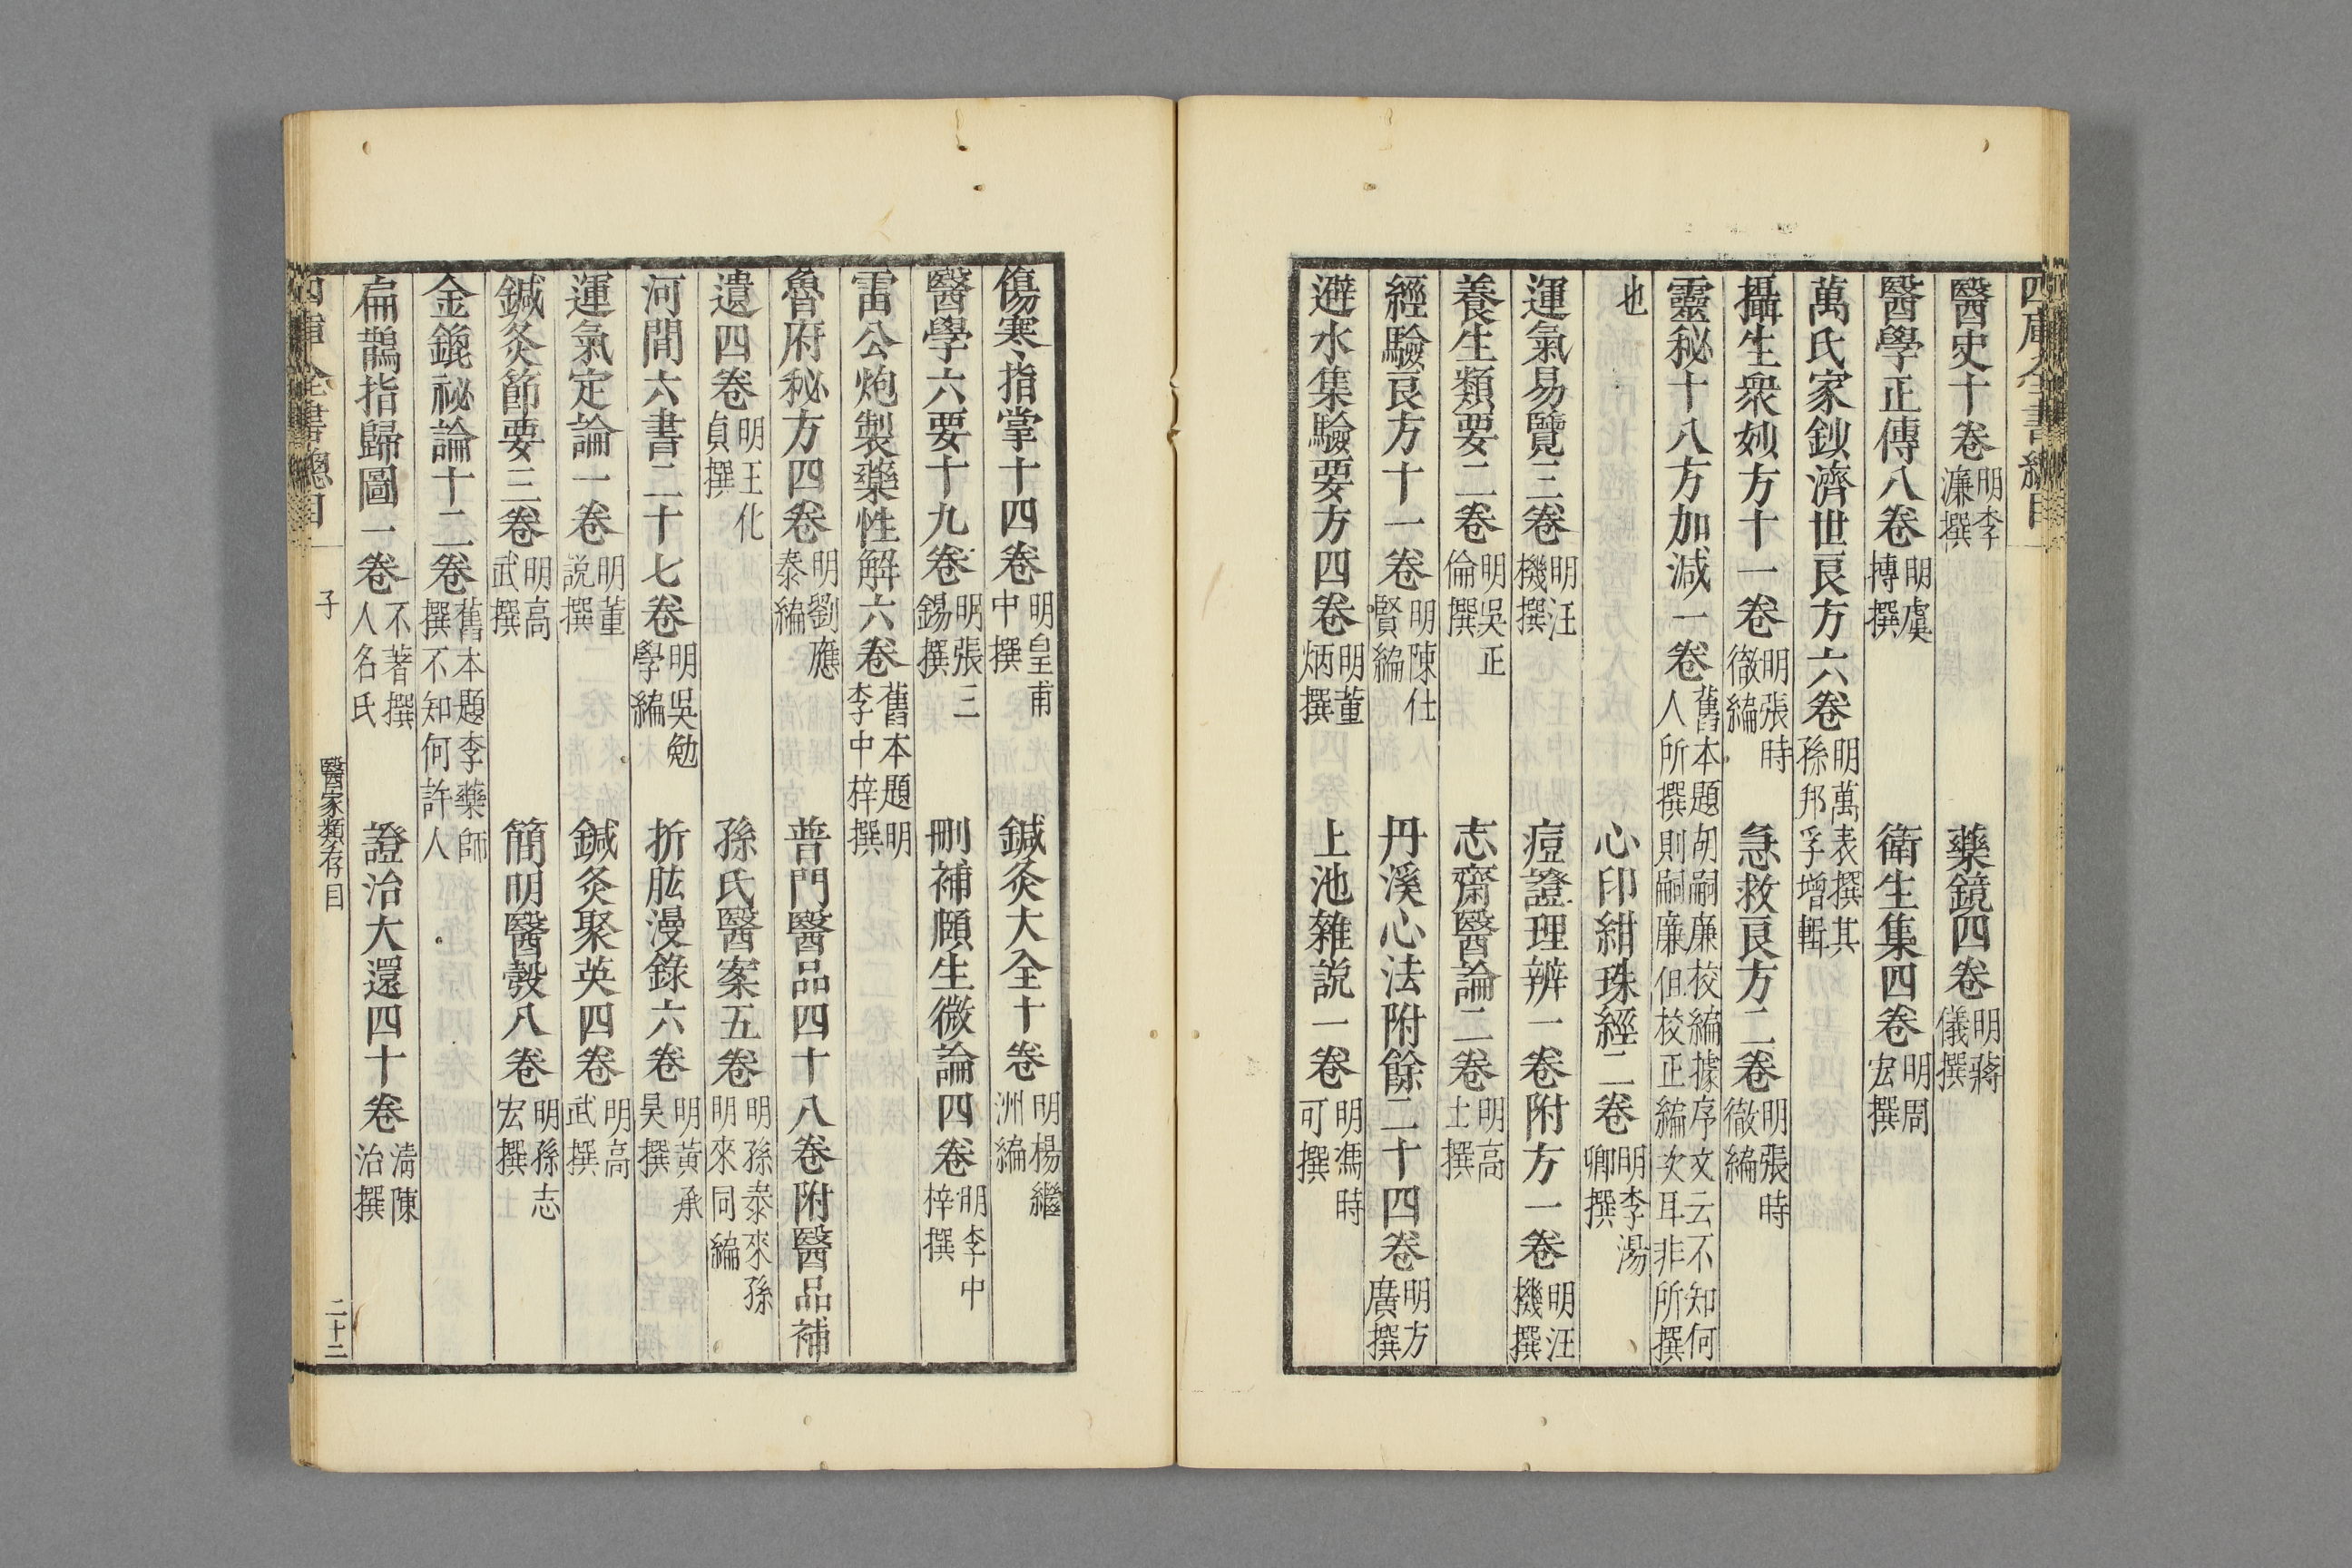 四庫全書總目
醫史十卷 明李濂撰 藥鏡四卷 明蔣儀撰
醫學正傳八卷 明虞摶撰 衛生集四卷 明周宏撰
萬氏家鈔濟世良方六卷 明萬表撰其孫邦孚增輯
攝生衆妙方十一卷 明張時徹編 急救良方二卷 明張時徹編
靈秘十八方加減一卷 舊本題胡嗣廉校編據序文云不知何人所撰則嗣廉但校正編次耳非所撰
也 心印紺珠經二卷 明李湯卿撰
運氣易覽三卷 明汪機撰 痘證理辨一卷附方一卷 明汪機撰
養生類要二卷 明吳正倫撰 志齋醫論二卷 明高士撰
經驗良方十一卷 明陳仕賢編 丹溪心法附餘二十四卷 明方廣撰
避水集驗要方四卷 明董炳撰 上池雜說一卷 明馮時可撰
傷寒指掌十四卷 明皇甫中撰 鍼灸大全十卷 明楊繼洲編
醫學六要十九卷 明張三錫撰 刪補頤生微論四卷 明李中梓撰
雷公炮製藥性解六卷 舊本題明李中梓撰
魯府秘方四卷 明劉應泰編 普門醫品四十八卷附醫品補
遺四卷 明王化貞撰 孫氏醫案五卷 明孫泰來孫明來同編
河間六書二十七卷 明吳勉學編 折肱漫錄六卷 明黃承昊撰
運氣定論一卷 明董說撰 鍼灸聚英四卷 明高武撰
鍼灸節要三卷 明高武撰 簡明醫彀八卷 明孫志宏撰
金鎞祕論十二卷 舊本題李藥師撰不知何許人
扁鵲指歸圖一卷 不著撰人名氏 證治大還四十卷 清陳治撰
四庫全書總目 子 醫家類存目 二十二